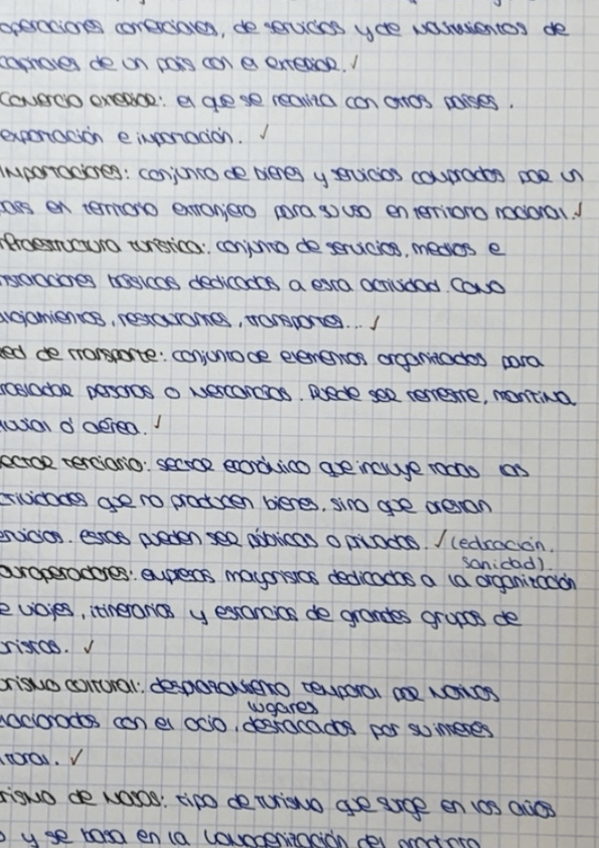 operaciones comerciales, de servicios y de movimientos de
capitales de un país con el exterior.
Comercio exterior: el que se realiza con otros países.
exportación e importación.
Importaciones: conjunto de bienes y servicios comprados por un
país en territorio extranjero para su uso en territorio nacional.
nfraestructura turística: conjunto de servicios, medios e
nstalaciones básicas dedicados a esta actividad. Como
alojamientos, restaurantes, transportes...
ed de transporte: conjunto de elementos organizados para
trasladar personas o mercancías. Puede ser terrestre, marítima
fluvial o aérea.
ector terciario: sector económico que incluye todas las
ctividades que no producen bienes, sino que prestan
ervicios. estos pueden ser públicos o privados. (educación.
sanidad).
ouroperadores: empresas mayoristas dedicadas a la organización
e viajes, itinerarios y estancias de grandes grupos de
uristas.
urismo cultural: desplazamiento temporal por motivos
lugares
elacionados con el ocio, destacados por su interés
ltural.
rismo de masas: tipo de turismo que surge en los años
y se basa en la homogenización del producto